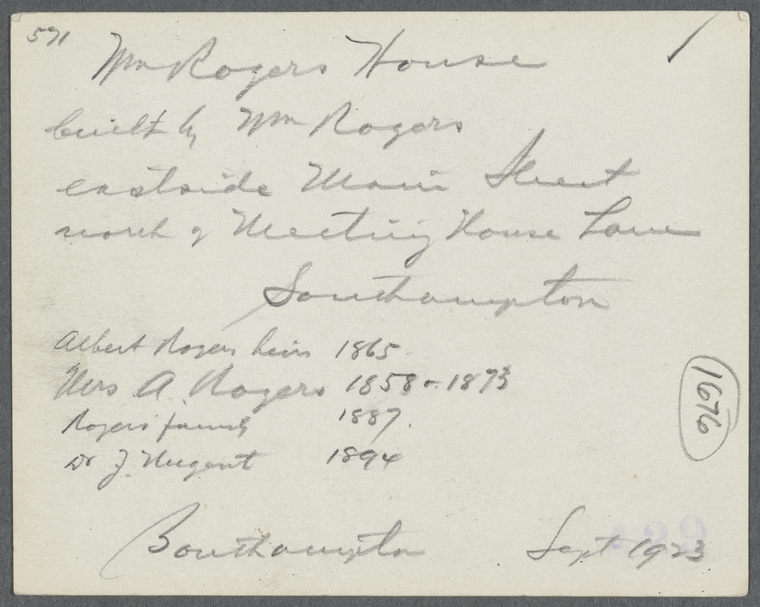 571
Wm Rogers House
built by Wm Rogers
eastside Main Street
north of Meeting House Lane
Southampton
Albert Rogers heirs 1865
Mrs A. Rogers 1858 & 1873
Rogers family 1887.
Dr J. Nugent 1894
1676
Southampton Sept 1923